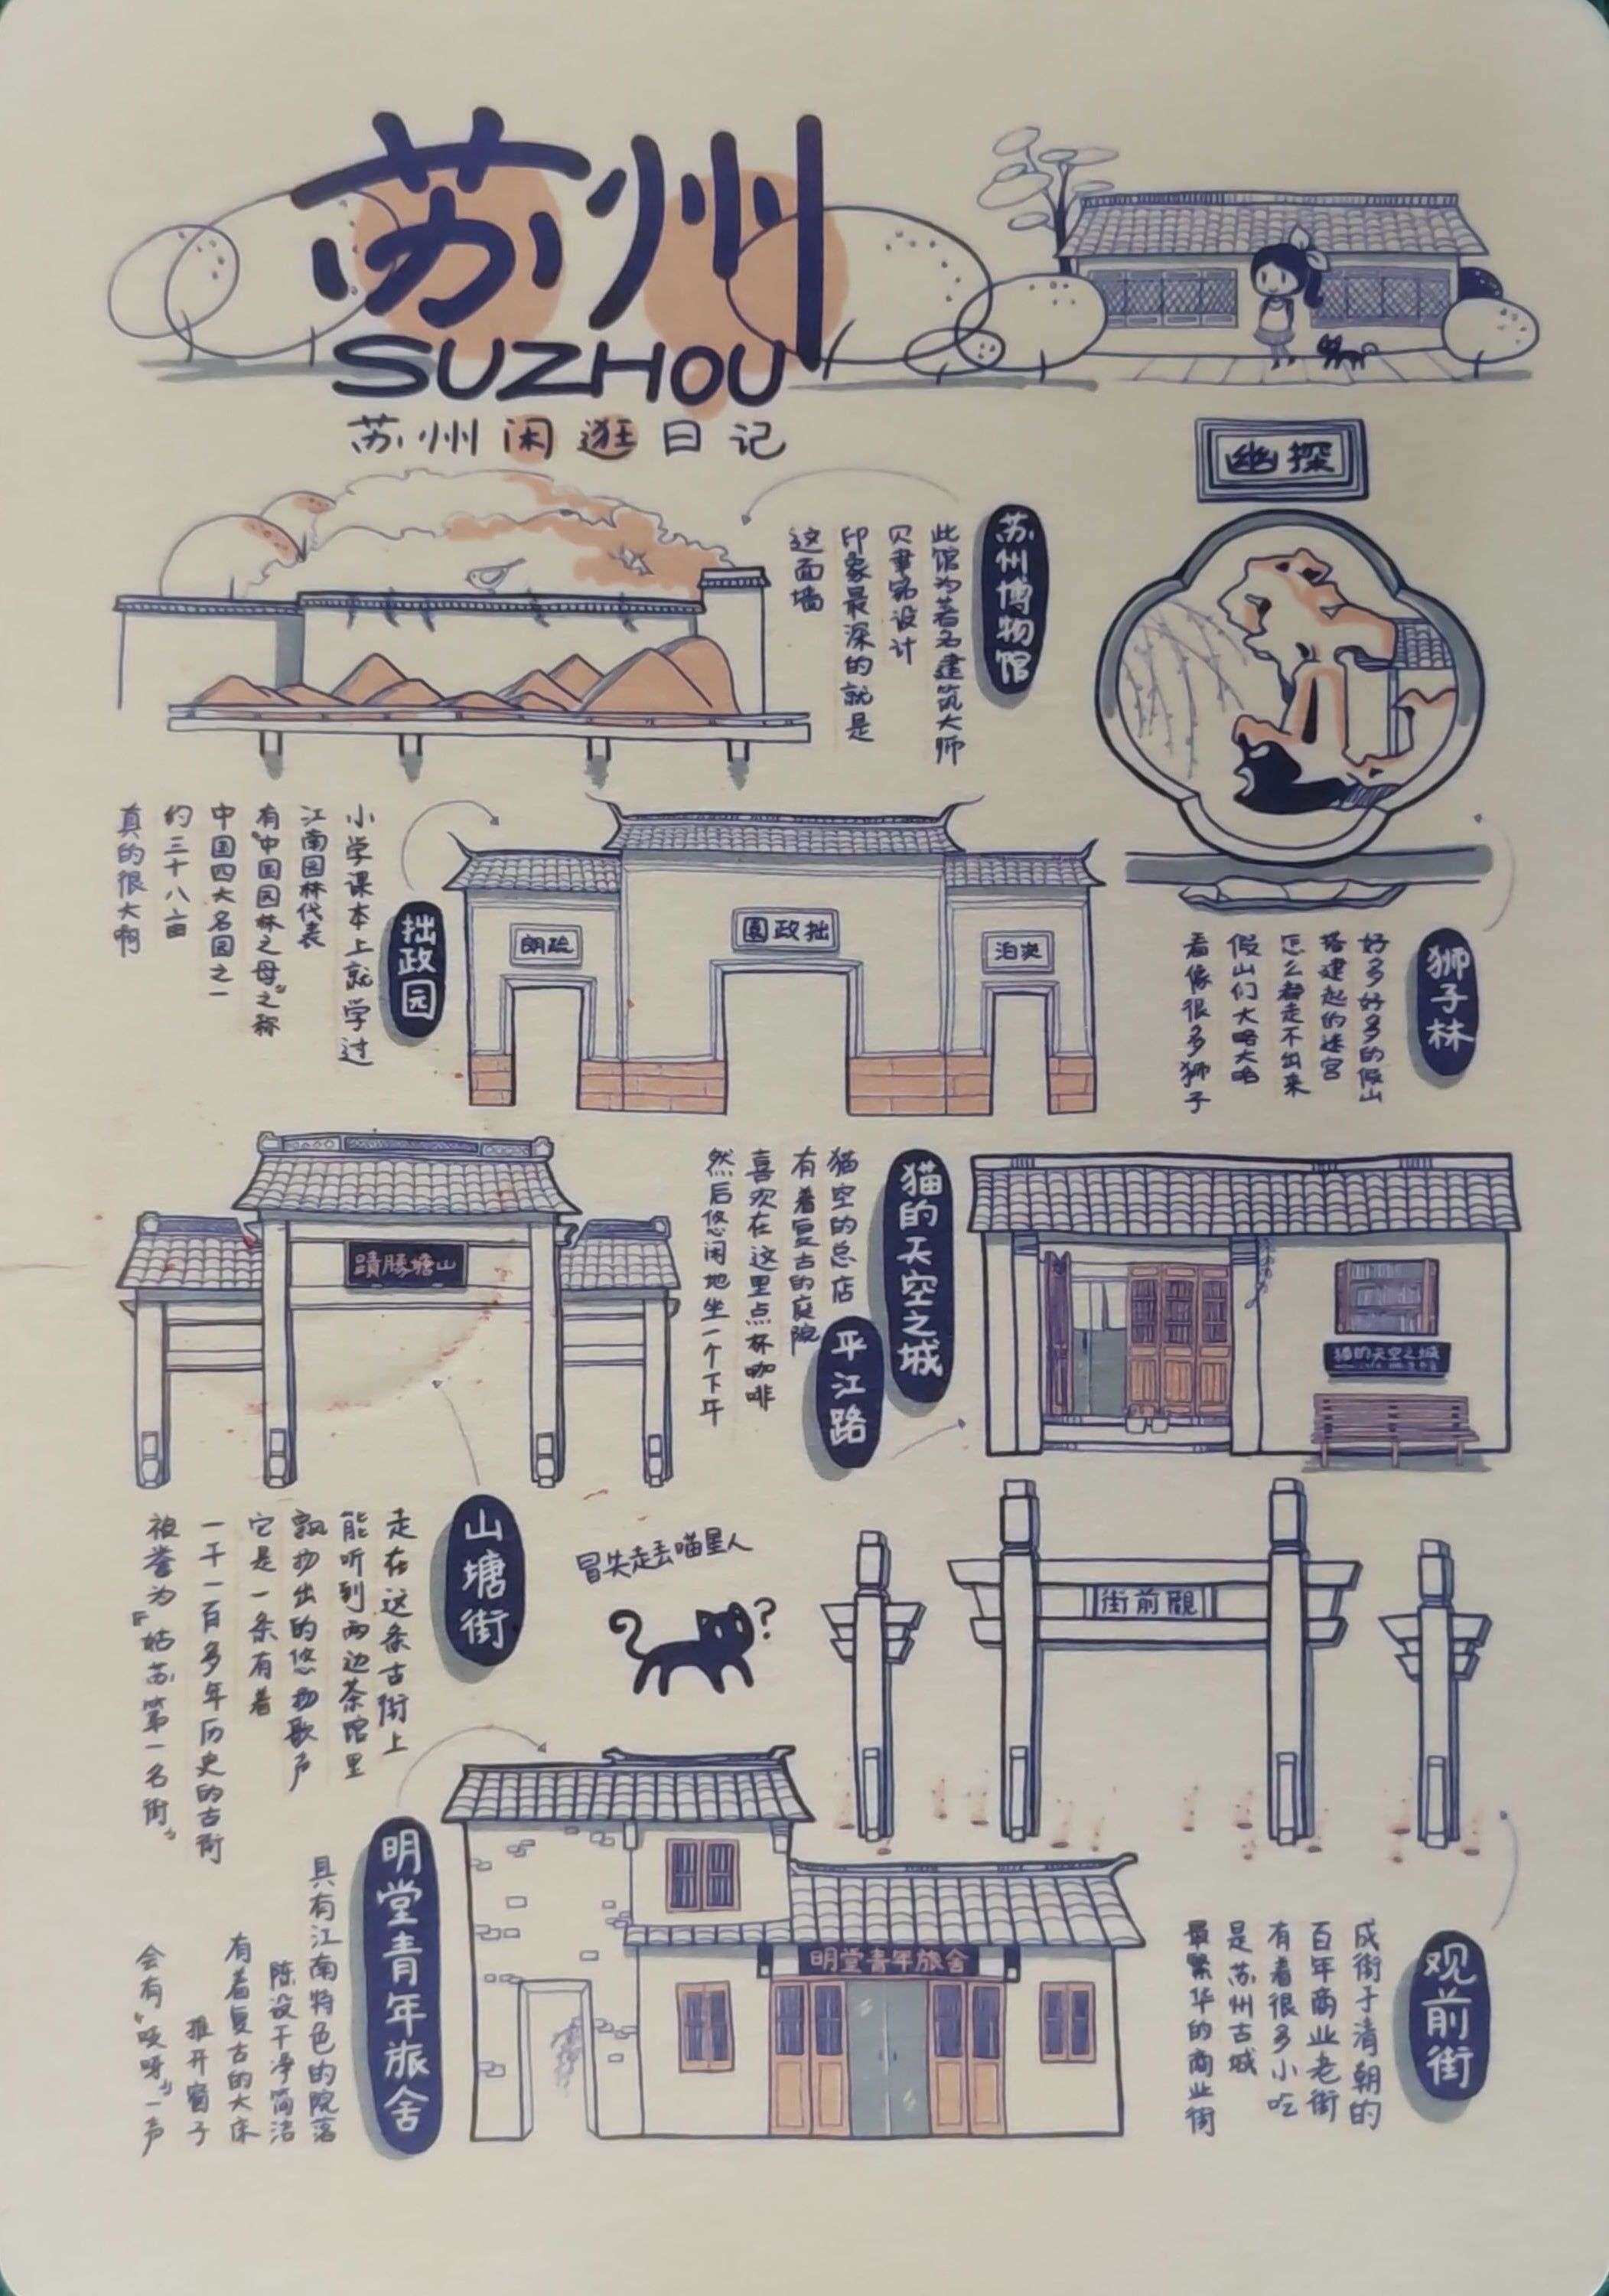 苏州
SUZHOU
苏州闲逛日记
幽探
苏州博物馆
此馆为著名建筑大师
贝聿铭设计
印象最深的就是
这面墙
拙政园
小学课本上就学过
江南园林代表
有“中国园林之母”之称
中国四大名园之一
约三十八亩
真的很大啊
疏朗
園政拙
泊淡
狮子林
好多好多的假山
搭建起的迷宫
怎么着走不出来
假山们大略大略
看像很多狮子
蹟勝塘山
猫的天空之城
平江路
猫空的总店
有着复古的庭院
喜欢在这里点杯咖啡
然后悠闲地坐一个下午
猫的天空之城
山塘街
走在这条古街上
能听到两边茶馆里
飘扬出的悠扬歌声
它是一条有着
一千一百多年历史的古街
被誉为『姑苏第一名街』
冒失走丢喵星人
?
街前觀
明堂青年旅舍
具有江南特色的院落
陈设干净简洁
有着复古的大床
推开窗子
会有“吱呀”一声
明堂青年旅舍
观前街
成街于清朝的
百年商业老街
有着很多小吃
是苏州古城
最繁华的商业街